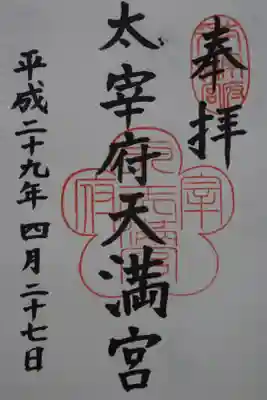 奉拝
太宰府天満宮
平成二十九年四月二十七日